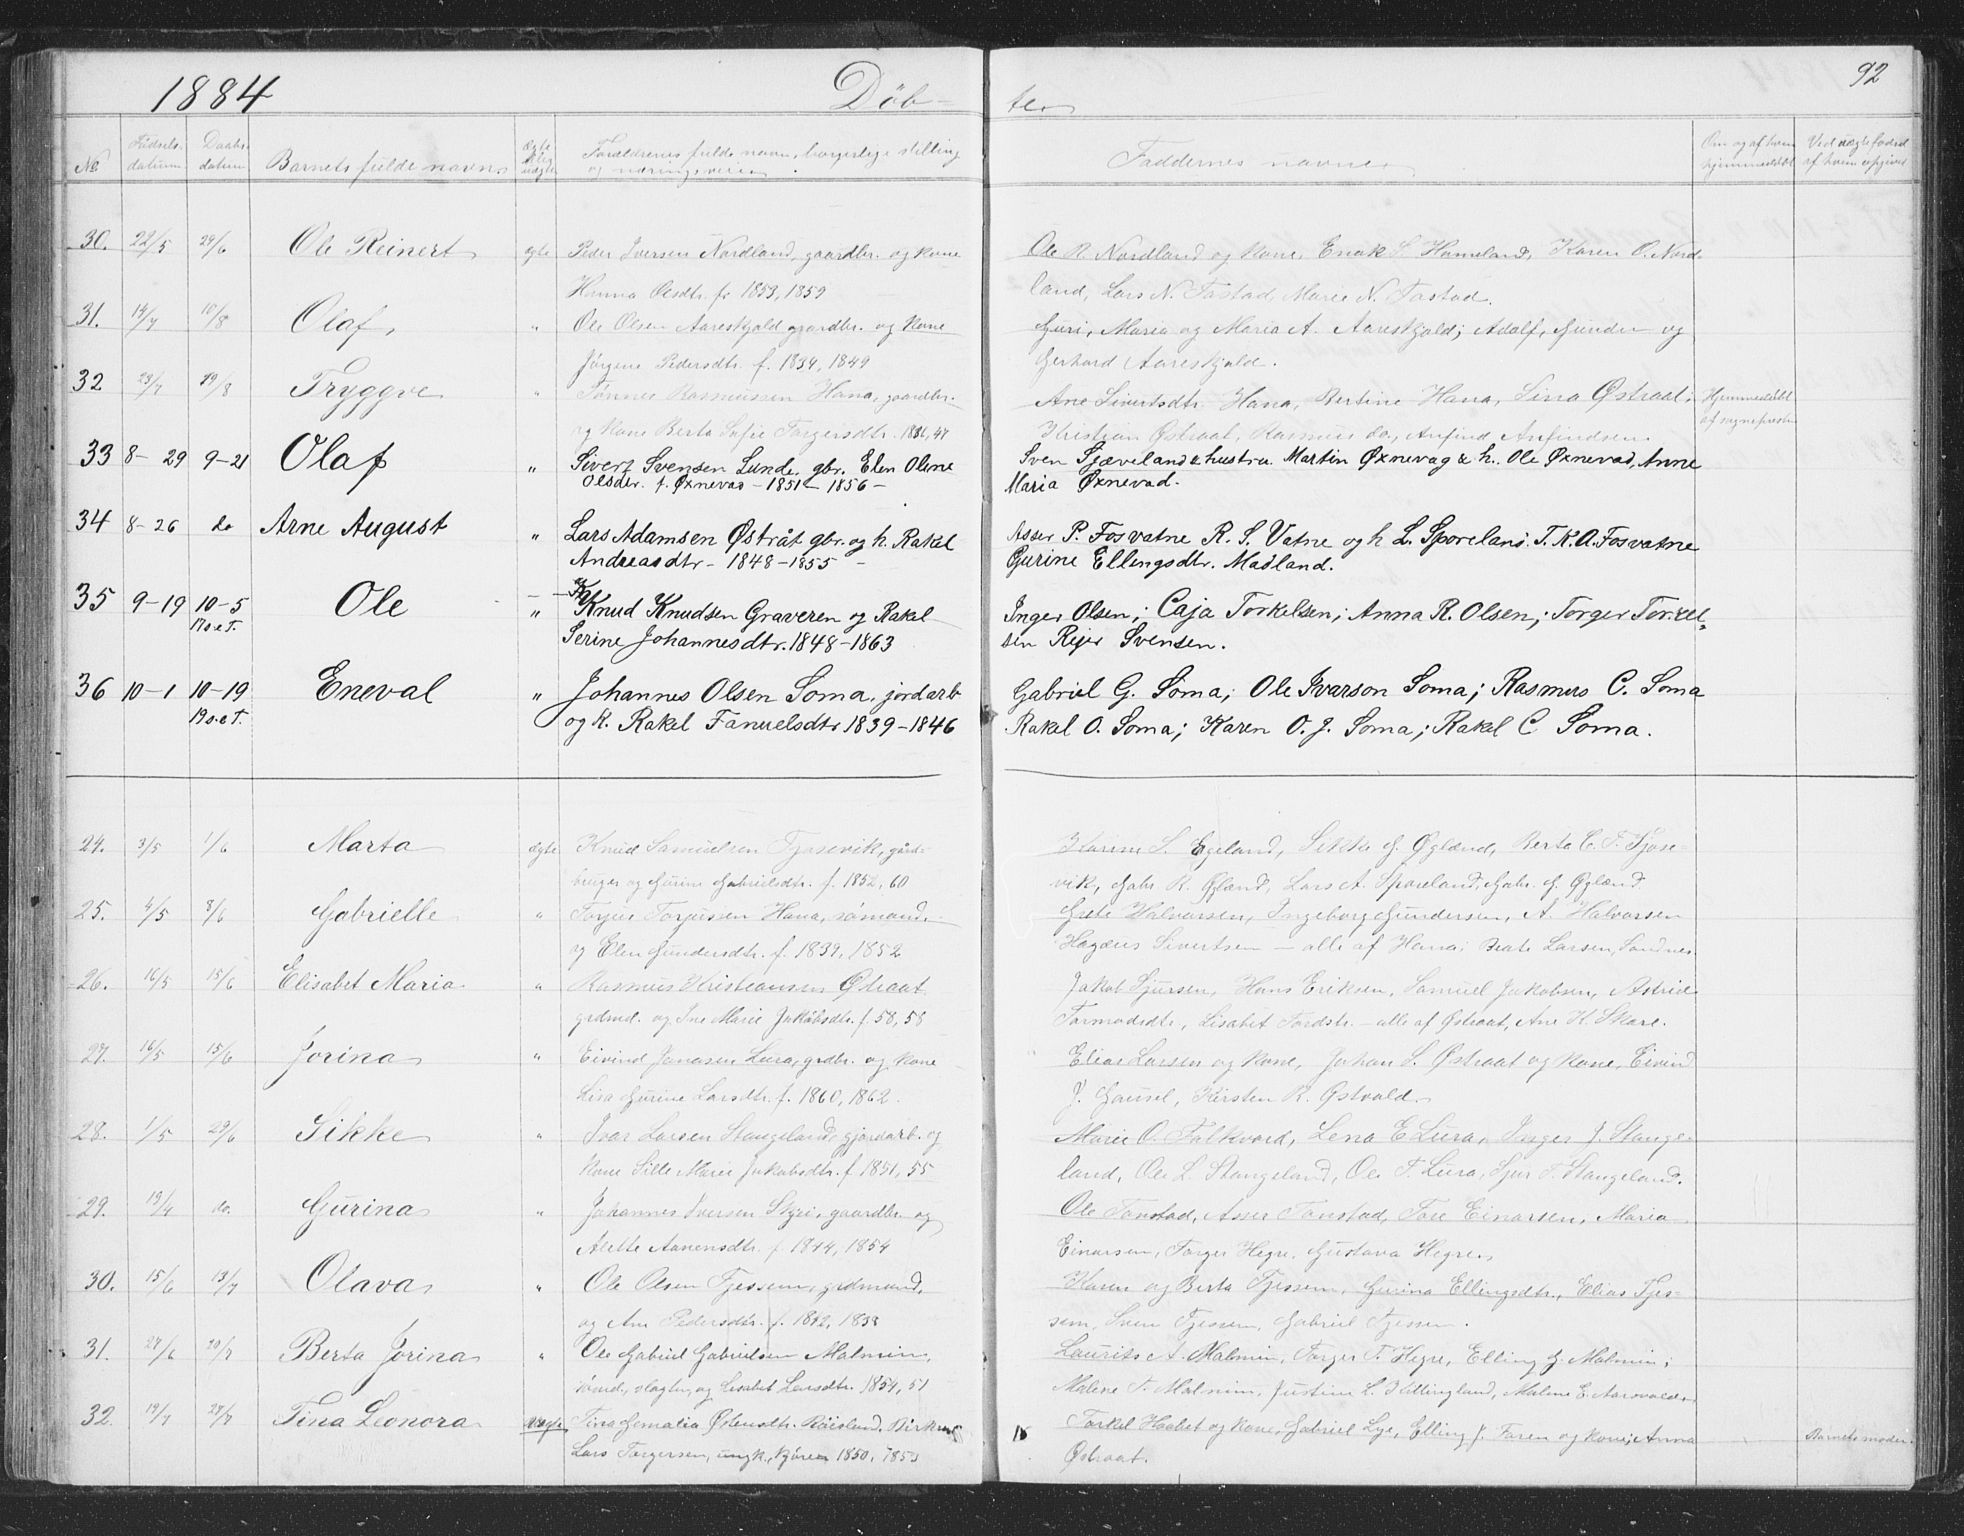 1884 Døb- te. 92
No Fødsels- datum Daabs- datum Barnets fulde navn Ægte eller uægte Forældrenes fulde navn, borgerlige stilling og næringsvei Faddernes navne. Om og af hvem hjemmedøbt Ved uægte fødsel af hvem opgivet
30. 22/5 29/6 Ole Reinert ægte Peder Iversen Nordland, gaardbr. og kone Ole R. Nordland og kone, Enok S. Hameland, Karen O. Nord-
Hanna Olsdtr. f. 1853, 1859 land, Lars N. Tastad, Marie N. Tastad.
31. 14/7 10/8 Olaf, " Ole Olsen Aareskjold gaardbr. og kone Guri, Maria og Maria A. Aareskjold; Adolf, Gunder og
Jørgine Pedersdtr. f. 1834, 1849 Gerhard Aareskjold.
32 23/7 Tryggve " Tønnes Rasmussen Hana, gaardbr. Ane Sivertsdtr. Hana, Bertine Hana, Sina Østraat; Hjemmedøbt
og kone Berta Sofie Torgersdtr. Kristian Østraat, Rasmus do, Anfind Anfindsen. af sognepresten
33 8-29 9-21 Olaf " Sivert Svensen Lunde, gbr. Elen Oline Sven Sjæveland & hustru Martin Øxnevag & h. Ole Øxnevad, Anne
Olsdtr. f. Øxnevad - 1851 - 1856 - Maria Øxnevad.
34 8-26 do Arne August " Lars Adamsen Østråt gbr. og h. Rakel Asser P. Fosvatne R. S. Vatne og h L. Sporeland. T. K. A. Fosvatne
Andreasdtr - 1848-1855 - Gurine Ellingsdtr. Madland.
35 9-19 10-5 Ole " Knud Knudsen Graveren og Rakel Inger Olsen; Caja Torkelsen; Anna R. Olsen; Torger Torkel-
17 s.e.T. Serine Johannesdtr. 1848-1863 sen Reier Svensen.
36 10-1 10-19 Eneval " Johannes Olsen Soma, jordarb Gabriel G. Soma; Ole Ivarson Soma; Rasmus C. Soma
19 s.e.T. og k. Rakel Fanuelsdtr 1839-1846 Rakel O. Soma; Karen O. J. Soma; Rakel C Soma.
24. 3/5 1/6 Marta ægte Knud Samuelsen Tjosevik, gård- Karine S. Egeland, Sikke G. Øglænd, Berta C. T. Tjose-
bruger og Gurine Gabrielsdtr. f. 1852, 60 vik, Gabr. R. Øglænd, Lars A. Sporeland, Gabr. G. Øglænd.
25. 4/5 8/6 Gabrielle " Torjus Torjussen Hana, sømand, Grete Halvorsen, Ingeborg Gundersen, A. Halvorsen
og Elen Gundersdtr. f. 1839, 1852 Hagæus Sivertsen - alle af Hana; Beate Larsen, Sandnes.
26. 16/5 15/6 Elisabet Maria " Rasmus Kristiansen Østraat Jakob Sjursen, Hans Eriksen, Samuel Jakobsen, Astrid
grdmd. og Ine Marie Jakobsdtr. f. 58, 58 Tormodsdtr, Lisabet Tordsdtr. - alle af Østraat, Ane K. Skare.
27. 16/5 15/6 Jorina " Eivind Jonasen Lura, grdbr. og kone Elias Larsen og kone, Johan S. Østraat og kone, Eivind
Lisa Gurine Larsdtr. f. 1860, 1862. J. Gausel, Kirsten R. Østvold.
28. 1/5 29/6 Sikke " Ivar Larsen Stangeland, gjordarb. og Marie O. Falkvard, Lena E Lura, Inger J. Stange-
kone Sille Marie Jakobsdtr. f 1851, 55 land, Ole L. Stangeland, Ole T. Lura, Sjur T. Stangeland.
29. 19/4 do. Gurina " Johannes Iversen Skjei, gaardbr. og Ole Tonstad, Asser Tonstad, Tore Einarsen, Maria
Alette Aanensdtr. f. 1844, 1854 Einarsen, Torger Hegre, Gustava Hegre.
30. 15/6 13/7 Olava " Ole Olsen Tjessem, grdmand, Karen og Berta Tjessem, Gurina Ellingsdtr., Elias Tjes-
og Ane Pedersdtr. f. 1842, 1838 sem, Sven Tjessem, Gabriel Tjessem.
31. 29/6 20/7 Berta Jorina " Ole Gabriel Gabrielsen Malmin, Laurits A. Malmin, Torger T. Hegre, Elling G. Malmin;
slagter, og Lisabet Larsdtr. 1854, 51 Malene T. Malmin, Justine L. Killingland, Malene E. Aarsvold
32. 19/7 27/7 Tina Leonora uægte Tina Gemalia Østensdtr. Røisland, Birkre Torkel Haabet og kone, Gabriel Lye, Elling J. Foren og kone; Anna Barnets moder.
Lars Torgersen, ungk., 1850, 1853 Østraat.